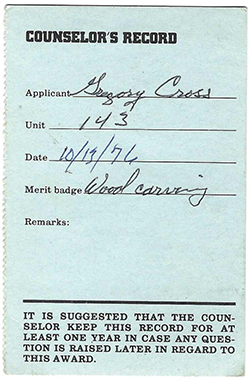 COUNSELOR'S RECORD
Applicant Gregory Cross
Unit 143
Date 10/19/76
Merit badge Wood carving
Remarks:
IT IS SUGGESTED THAT THE COUN-
SELOR KEEP THIS RECORD FOR AT
LEAST ONE YEAR IN CASE ANY QUES-
TION IS RAISED LATER IN REGARD TO
THIS AWARD.